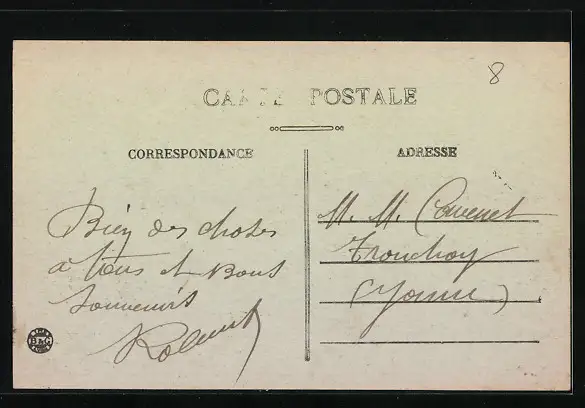 8
CARTE POSTALE
CORRESPONDANCE
ADRESSE
Bien des choses
à tous et Bons
Souvenirs
Robert
M. M. Couvenet
Tronchoy
(Yonne)